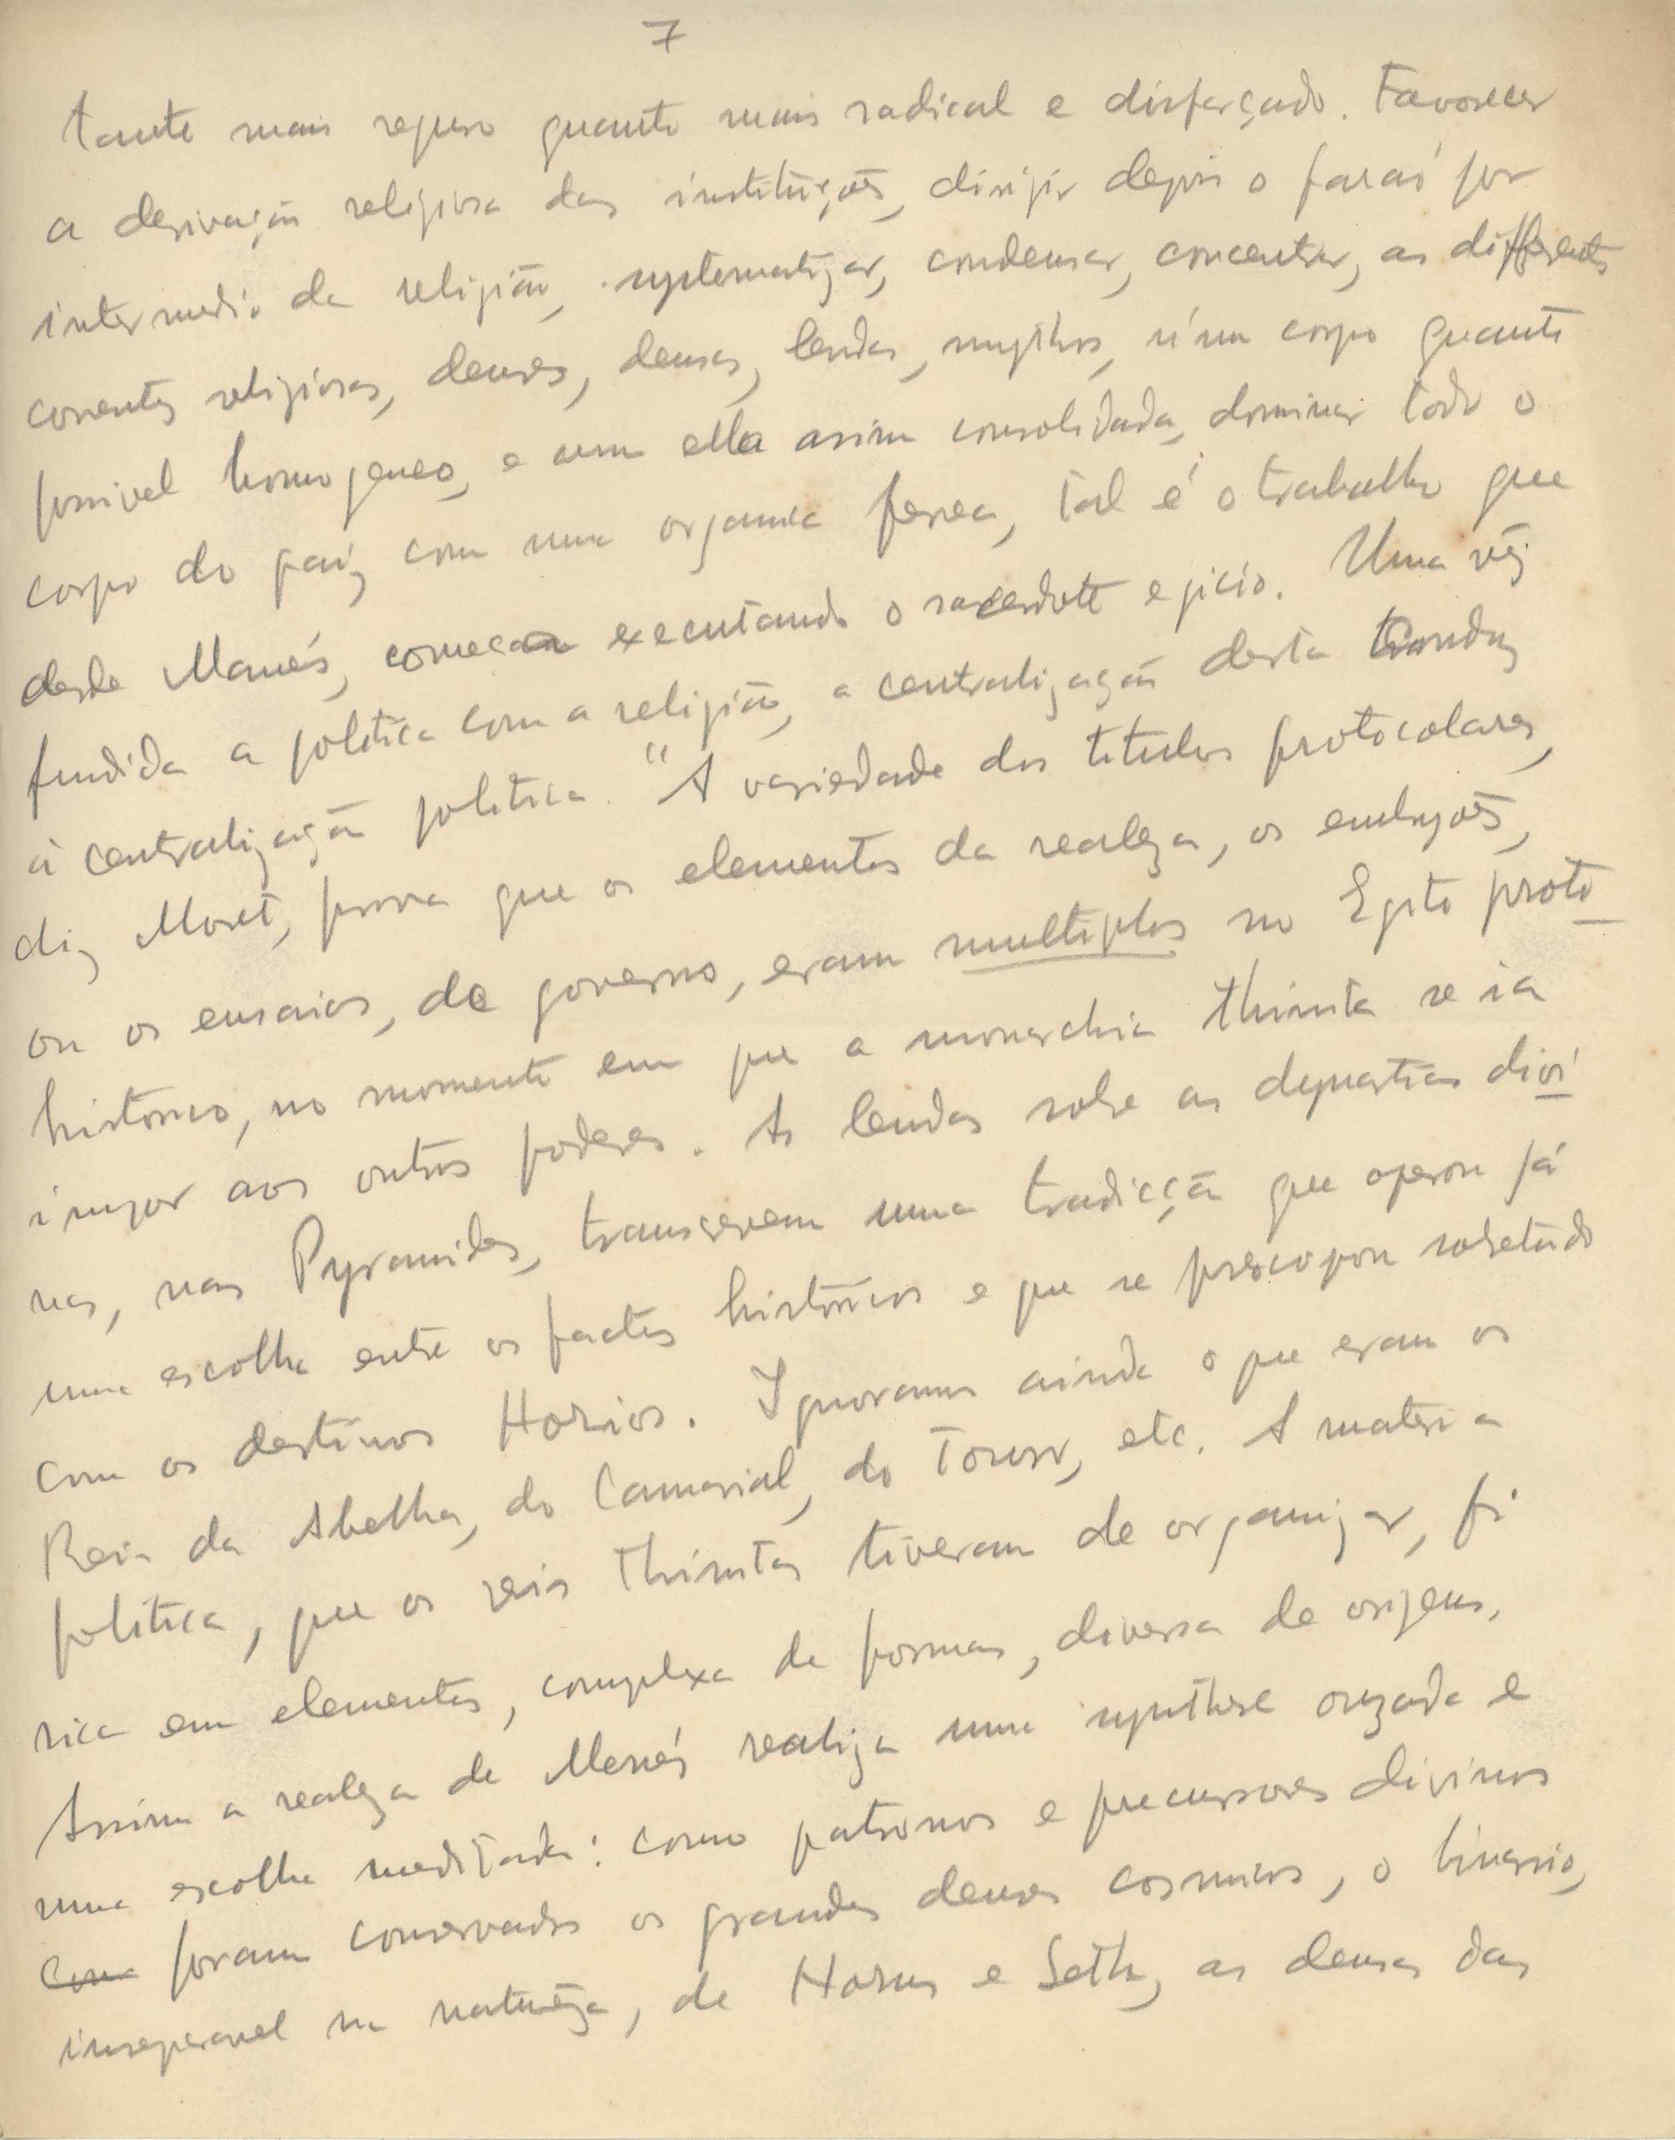 7
tanto mais seguro quanto mais radical e disfarçado. Favorecer
a derivação religiosa das instituições, dirigir depois o faraó por
intermedio da religião, systematizar, condensar, concentrar, as differentes
correntes religiosas, deuses, deusas, lendas, mythos, n'um corpo quanto
possivel homogeneo, e com ella assim consolidada, dominar todo o
corpo do paiz com uma organica ferrea, tal é o trabalho que
desde Manés, começa executando o sacerdote egicio. Uma vêz
fundida a politica com a religião, a centralização desta conduz
á centralização politica. "A variedade dos titulos protocolares,
diz Moret, prova que os elementos da realeza, os embryões,
ou os ensaios, de governo, eram multiplos no Egito proto
historico, no momento em que a monarchia thinita se ia
impor aos outros poderes. As lendas sobre as dynastias divi
nas, nas Pyramides, transcrevem uma tradicção que operou já
uma escolha entre os factos históricos e que se preocopou sobretudo
com os destinos Horios. Ignoramos ainda o que eram os
Reis da Abelha, do Camarial, do Touro, etc. A materia
politica, que os reis thinitas tiveram de organizar, foi
rica em elementos, complexa de formas, diversa de origens.
Assim a realeza de Menés realiza uma synthese ouzada e
uma escolha meditada: como patronos e precursores divinos
com foram conservados os grandes deuses cosmicos, o binario,
inseparavel na naturêza, de Horus e Seth, as deusas das